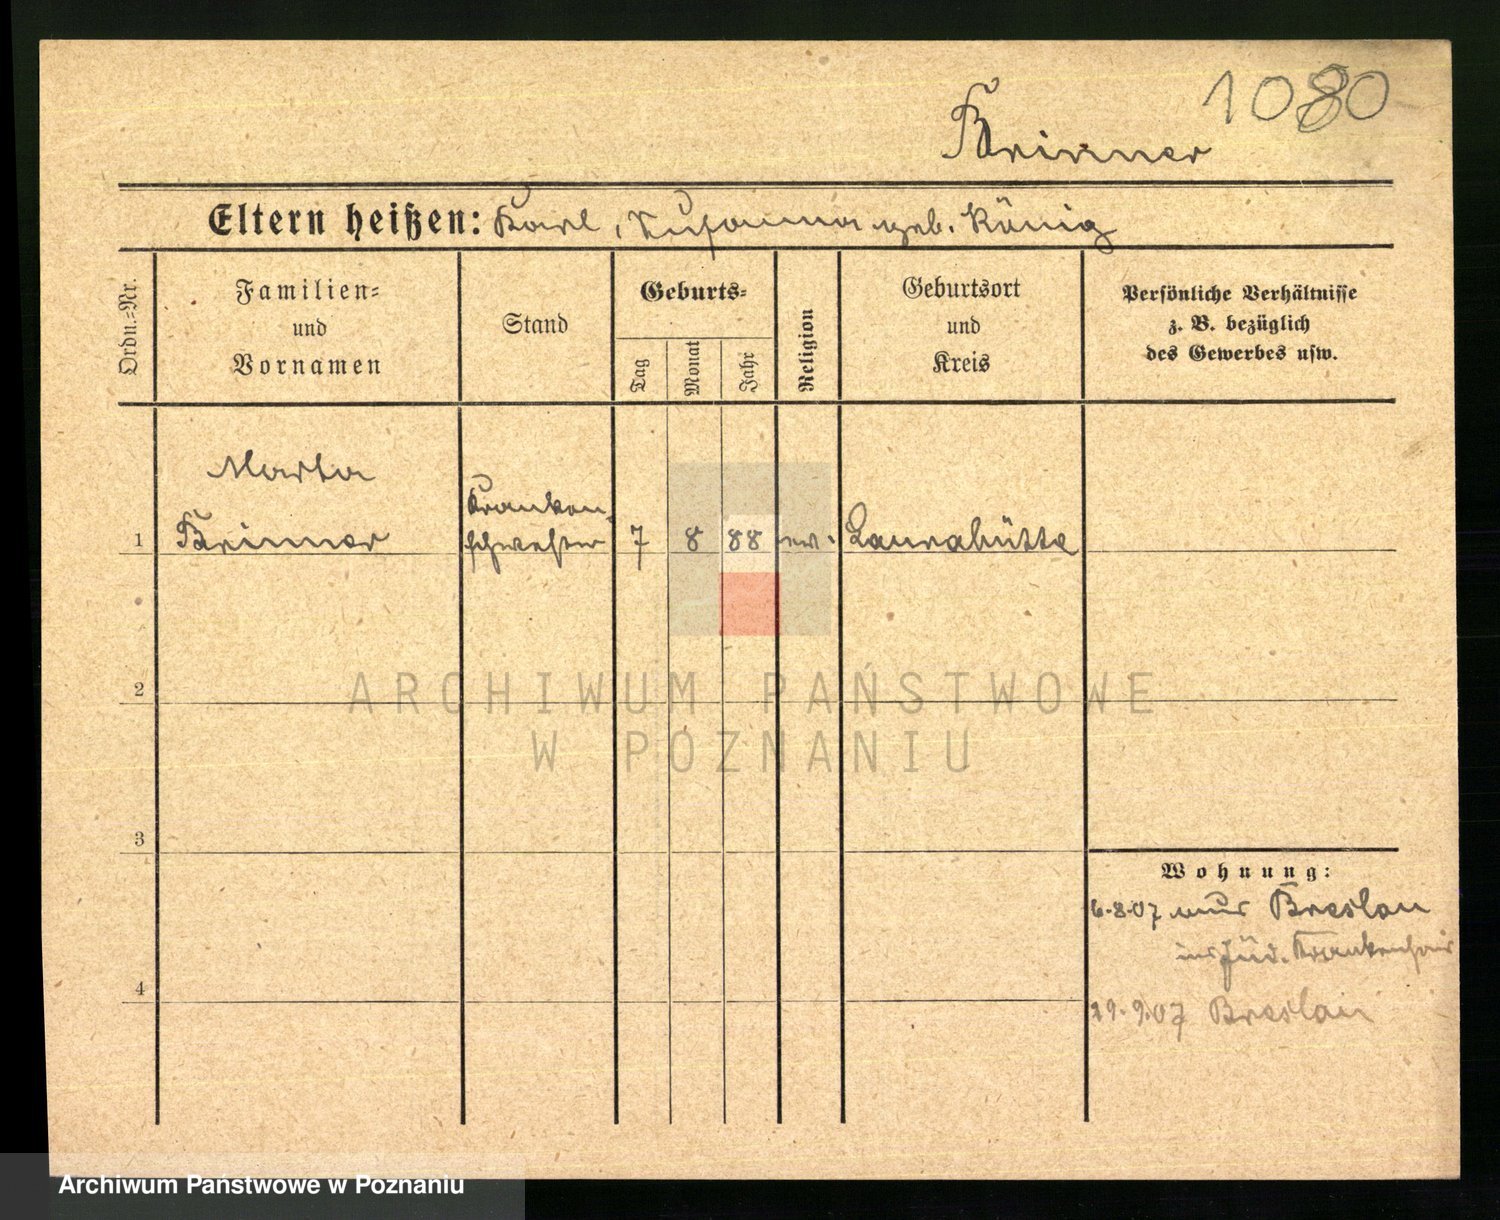 1080
Brinner
Eltern heißen: Karl, Susanna geb. König
Ordn.-Nr.
Familien-
und
Vornamen
Stand
Geburts-
Tag
Monat
Jahr
Religion
Geburtsort
und
Kreis
Persönliche Verhältnisse
z. B. bezüglich
des Gewerbes usw.
Marta
Kranken-
1 Brinner schwester 7 8 88 ev. Laurahütte
2
ARCHIWUM PAŃSTWOWE
W POZNANIU
3
Wohnung:
6.8.07 Breslau
Jüd. Krankenhaus
4
29.9.07 Breslau
Archiwum Państwowe w Poznaniu